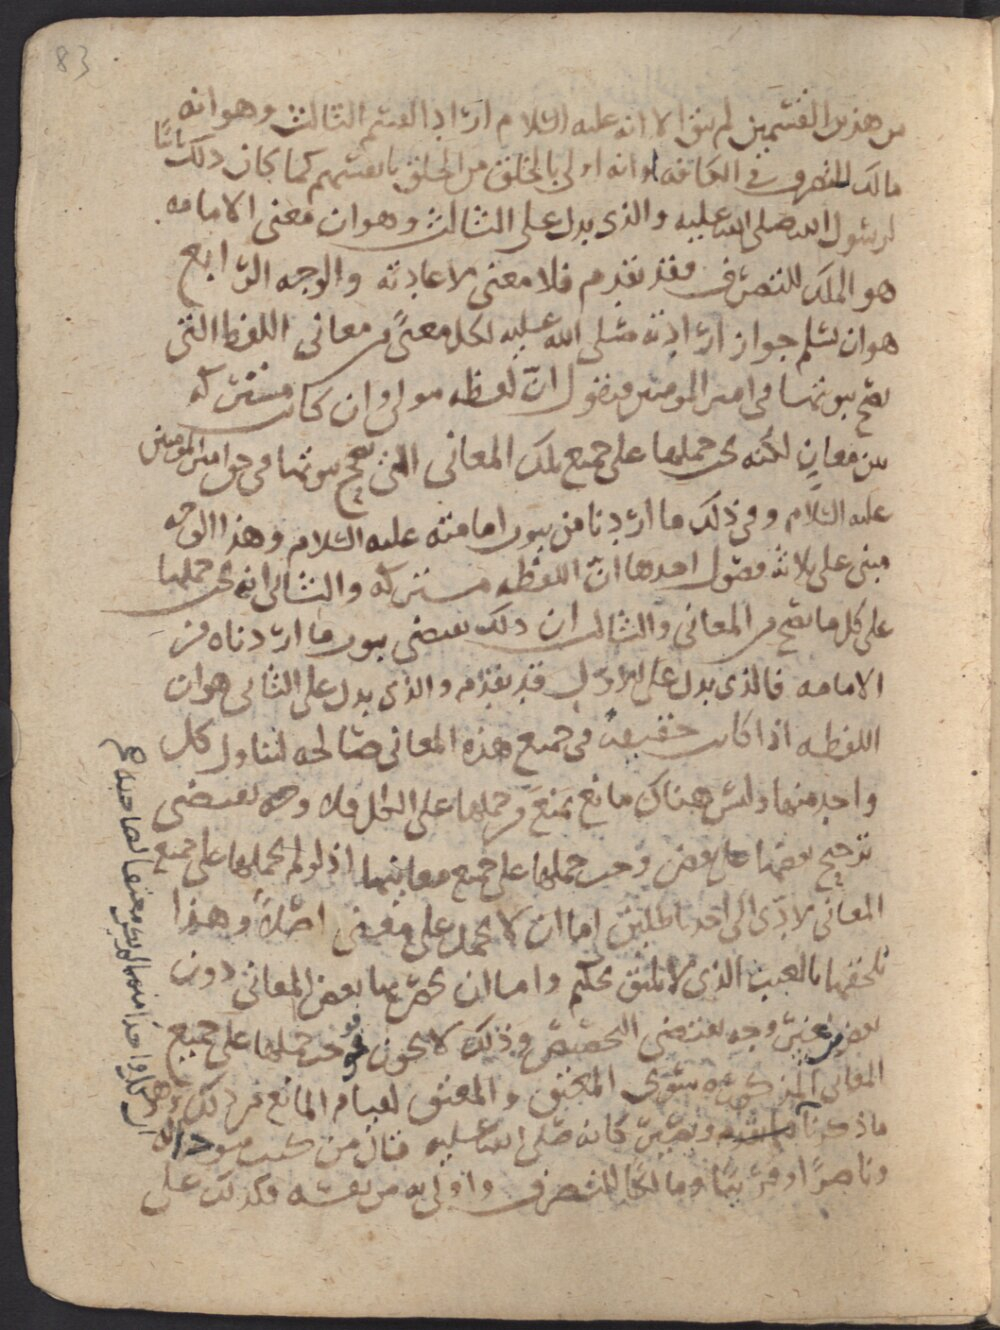 83
من هذين القسمين لم يبق الا انه عليه السلام اراد القسم الثالث وهو انه
مالك التصرف في الكافه وانه اولى بالخلق من الخلق بانفسهم كما كان ذلك ثابتا
لرسول الله صلى الله عليه والذي يدل على الثالث وهو ان معنى الامامه
هو الملك للتصرف فقد تقدم فلا معنى لاعادته والوجه الرابع
هو ان نسلم جواز ارادته صلى الله عليه لكل معنىً من معاني اللفظ التي
يصح ثبوتها في امير المومنين فنقول ان لفظه مولى وان كانت مشتركه
بين معانٍ لكنه يجب حملها على جميع تلك المعاني التي يصح ثبوتها في حق امير المومنين
عليه السلام وفي ذلك ما اردنا من ثبوت امامته عليه السلام وهذا الوجه
مبني على ثلاثه فصول احدها ان اللفظه مشتركه والثاني انه يجب حملها
على كل ما يصح من المعاني والثالث ان ذلك يقتضي ثبوت ما اردناه من
الامامه فالذي يدل على الاول قد تقدم والذي يدل على الثاني هو ان
اللفظه اذا كانت حقيقةً في جميع هذه المعاني صالحه لتناول كل
واحد منها وليس هناك مانع يمنع من حملها على الكل ولا وجه يقتضي
ترجيح بعضها على بعض وجب حملها على جميع معانيها اذ لو لم نحملها على جميع
المعاني لادى الى احد باطلين اما ان لا يحمل على معنى اصلاً وهذا
يلحقها بالعبث الذي لا يليق بحكيم واما ان يخص بها بعض المعاني دون
بعض من غير وجه يقتضي التخصيص وذلك لا يجوز فوجب حملها على جميع
المعاني المذكوره سوى المعتِق والمعتَق لقيام المانع من ذلك
ما ذكرنا ويصير كانه صلى الله عليه قال من كنت مودا له
وناصرًا او قريبًا ومالكًا للتصرف واولى به من نفسه فكذلك علي